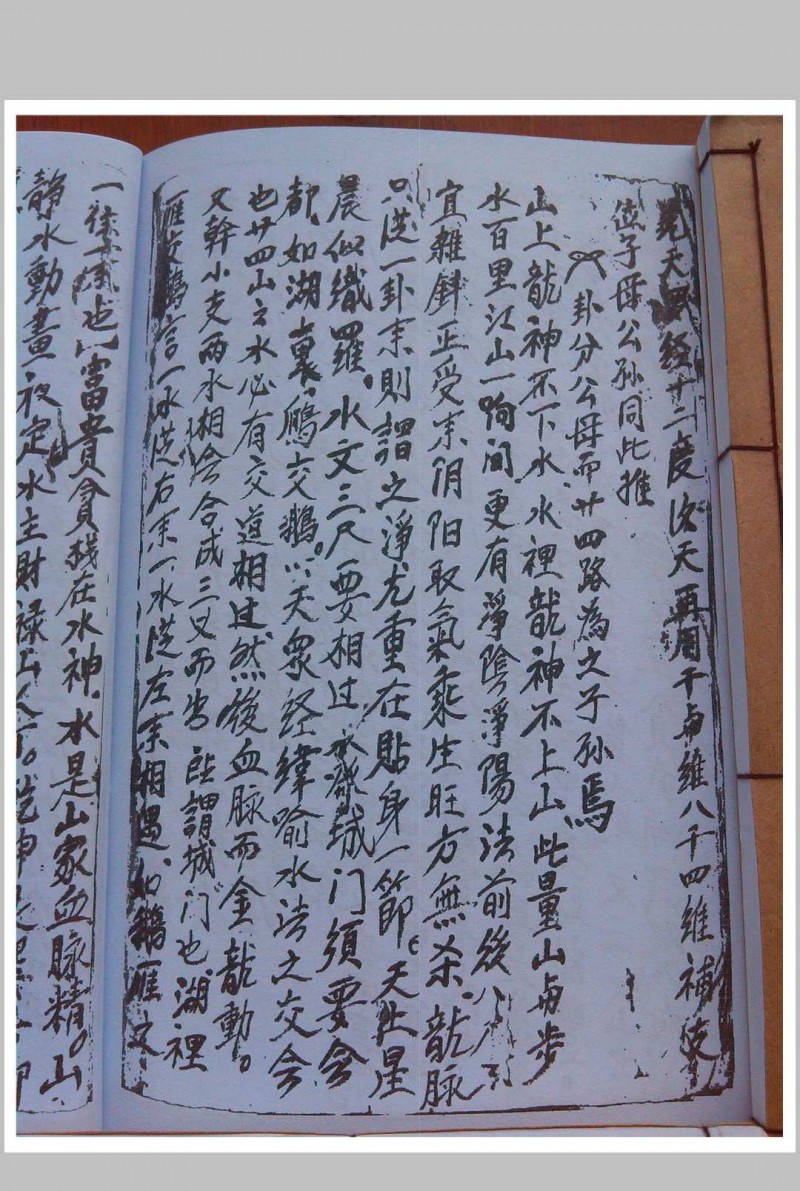 先天羅經十二度後天再用干與維八干四維補支
位子母公孫同此推
八卦分公母而廿四路為之子孫焉
山上龍神不下水、水裡龍神不上山、此量山与步
水百里江山一晌间更有淨陰淨陽法前後八尺不
宜雜斜正受来阴阳取氣乘生旺方無杀、龍脉
只從一卦来則謂之淨尤重在貼身一節、天上星
晨似織羅、水文三尺要相过水發城门須要会
却、如湖裏鴈交鵝、以天象经緯喻水法之交会
也廿四山之水必有交道相过然後血脉而金龍動。
又幹小支兩水相会合成三叉而出 即謂城门也湖裡
雁交鵝言一水從右来一水從左来相遇、如鵝雁交
富貴貧賎在水神、水是山家血脉精。山
静水動晝夜定水主財禄山人丁。乾坤